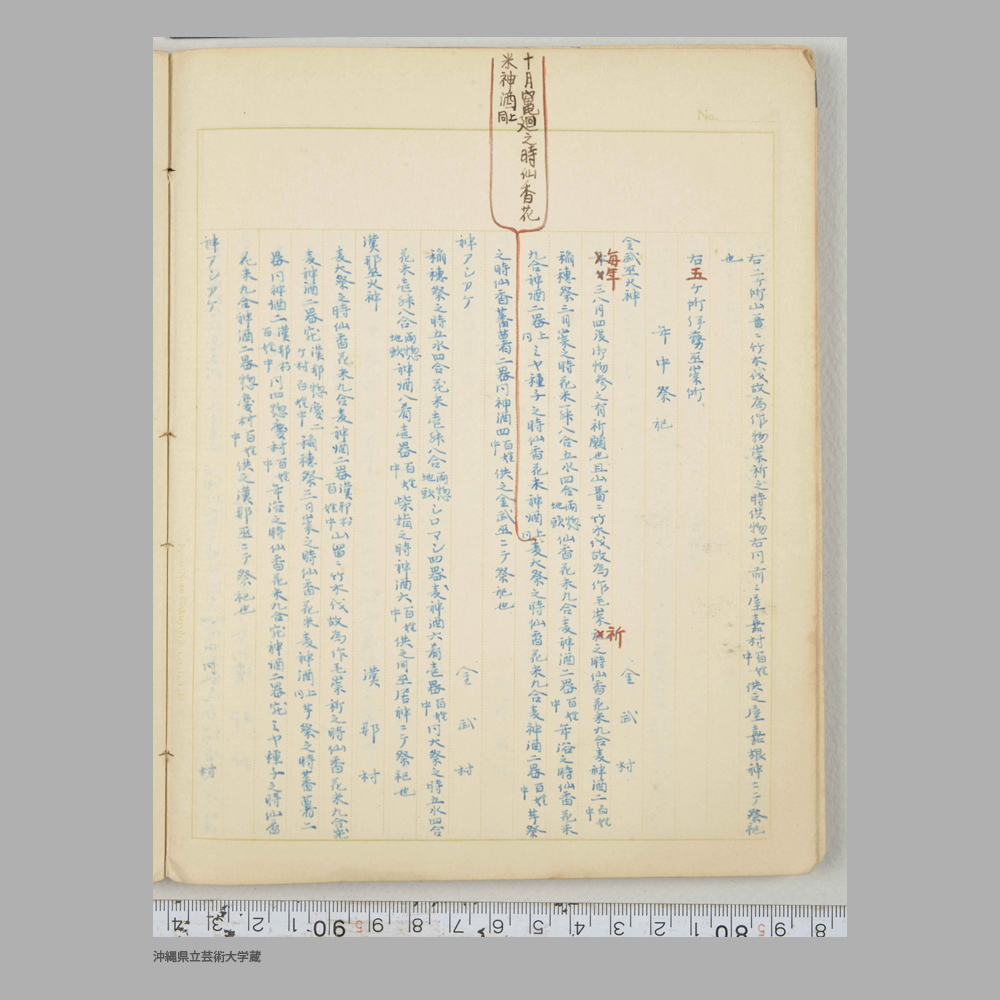 十月竈廻之時仙香花
米神酒同上
No.
右二ケ所山留ニ竹木伐故為作物祟祈之時供物右同前ニ屋嘉村百姓中供之屋嘉根神ニテ祭祀
也
右五ケ所伊藝巫崇所、
年中祭祀
金武巫火神 金武村
毎年三八月四度御物参之有祈願也且山留ニ竹木伐故為作毛祟祈之時仙香花米九合麦神酒二百姓中
稲穂祭三月崇之時花米一升八合五水四合両惣地頭仙香花米九合麦神酒二器百姓中年浴之時仙香花米
九合神酒二器同上ミヤ種子之時仙香花米神酒同上麦大祭之時仙香花米九合麦神酒二器百姓中芋祭
之時仙香蕃薯二器同神酒四百姓中供之金武巫ニテ祭祀也
神アシアケ 金武村
稲穂祭之時五水四合花米壱升八合両惣地頭シロマシ四器麦神酒六肴壱器百姓中同大祭之時五水四合
花米壱升八合両惣地頭神酒八肴壱器百姓中柴指之時神酒六百姓中供之同巫居神ニテ祭祀也
漢那巫火神 漢那村
麦大祭之時仙香花米九合麦神酒二器漢那村百姓中山留ニ竹木伐故為作毛祟祈之時仙香花米九合宛
麦神酒二器宛漢那惣慶二ケ村百姓中稲穂祭三月崇之時仙香花米麦神酒同上芋祭之時蕃薯二
器同神酒二漢那村百姓中同四惣慶村百姓中年浴之時仙香花米九合宛神酒二器宛ミヤ種子之時仙香
花米九合神酒二器惣慶村百姓中供之漢那巫ニテ祭祀也
神アシアケ 同村
4 3 2 1 90 9 8 7 6 5 4 3 2 1 80 9 8
沖縄県立芸術大学蔵